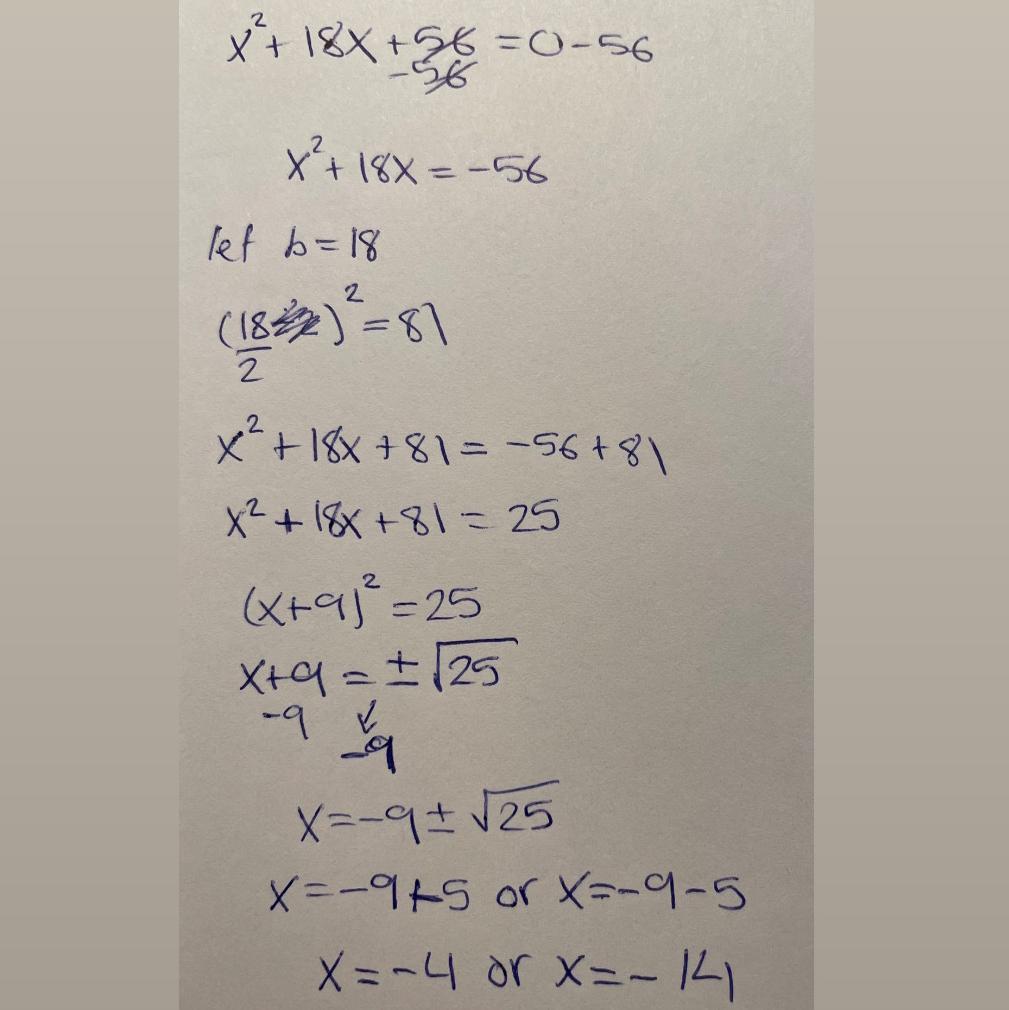 x² + 18x + 56 = 0 - 56
-56
x² + 18x = -56
let b = 18
(18/2)² = 81
x² + 18x + 81 = -56 + 81
x² + 18x + 81 = 25
(x+9)² = 25
x+9 = ±√25
-9 ↙ -9
x = -9 ± √25
x = -9+5 or x = -9-5
x = -4 or x = -14